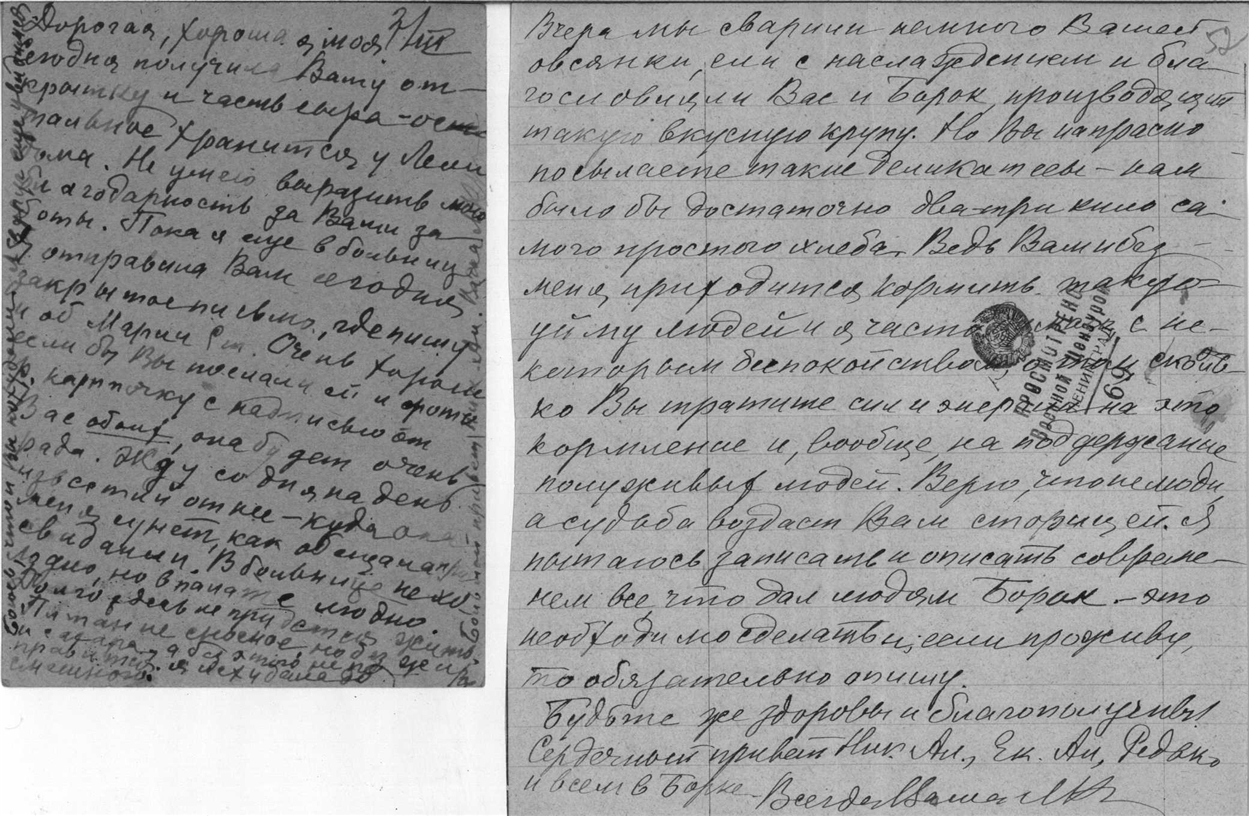 3/III
Дорогая, хорошая моя
сегодня получила Вашу от-
крытку и часть сыра – ост
тальное хранится у Лели
дома. Не умею выразить мою
благодарность за Ваши за-
боты. Пока я еще в больнице
Я отправила Вам сегодня
закрытое письмо, где пишу
и об Марии Ст. Очень хорошо
если бы Вы послали ей и фото
карточку с надписью от
Вас обоих, она будет очень
рада. Жду со дня на день
известий от нее – куда она
меня сунет, как обещала при
свидании. В больнице не хо
лодно, но в палате людно.
Долго здесь не придется жить.
Питание сносное, но без
и сахара, а без этого не по
правиться. Я исхудала до
смешного.
52
Вчера мы сварили немного Вашей
овсянки, ели с наслаждением и бла-
гословляли Вас и Борок, производящий
такую вкусную крупу. Но Вы напрасно
посылаете такие деликатесы – нам
было бы достаточно два-три кило са-
мого простого хлеба. Ведь Вам и без
меня приходится кормить такую
уйму людей и я часто с не-
которым беспокойством о том сколь-
ко Вы тратите сил и энергии на это
кормление и, вообще, на поддержание
полуживых людей. Верю, что не люди,
а судьба воздаст Вам сторицей. Я
пытаюсь записать и описать современ-
нем все, что дал людям Борок – это
необходимо сделать и, если проживу,
то обязательно опишу.
Будьте же здоровы и благополучны!
Сердечный привет Ник. Ал., Ек. Ал., Редько
и всем в Борке. Всегда Ваша
ПРОСМОТРЕНО
Военной Цензурой
ЛЕНИНГРАД
69